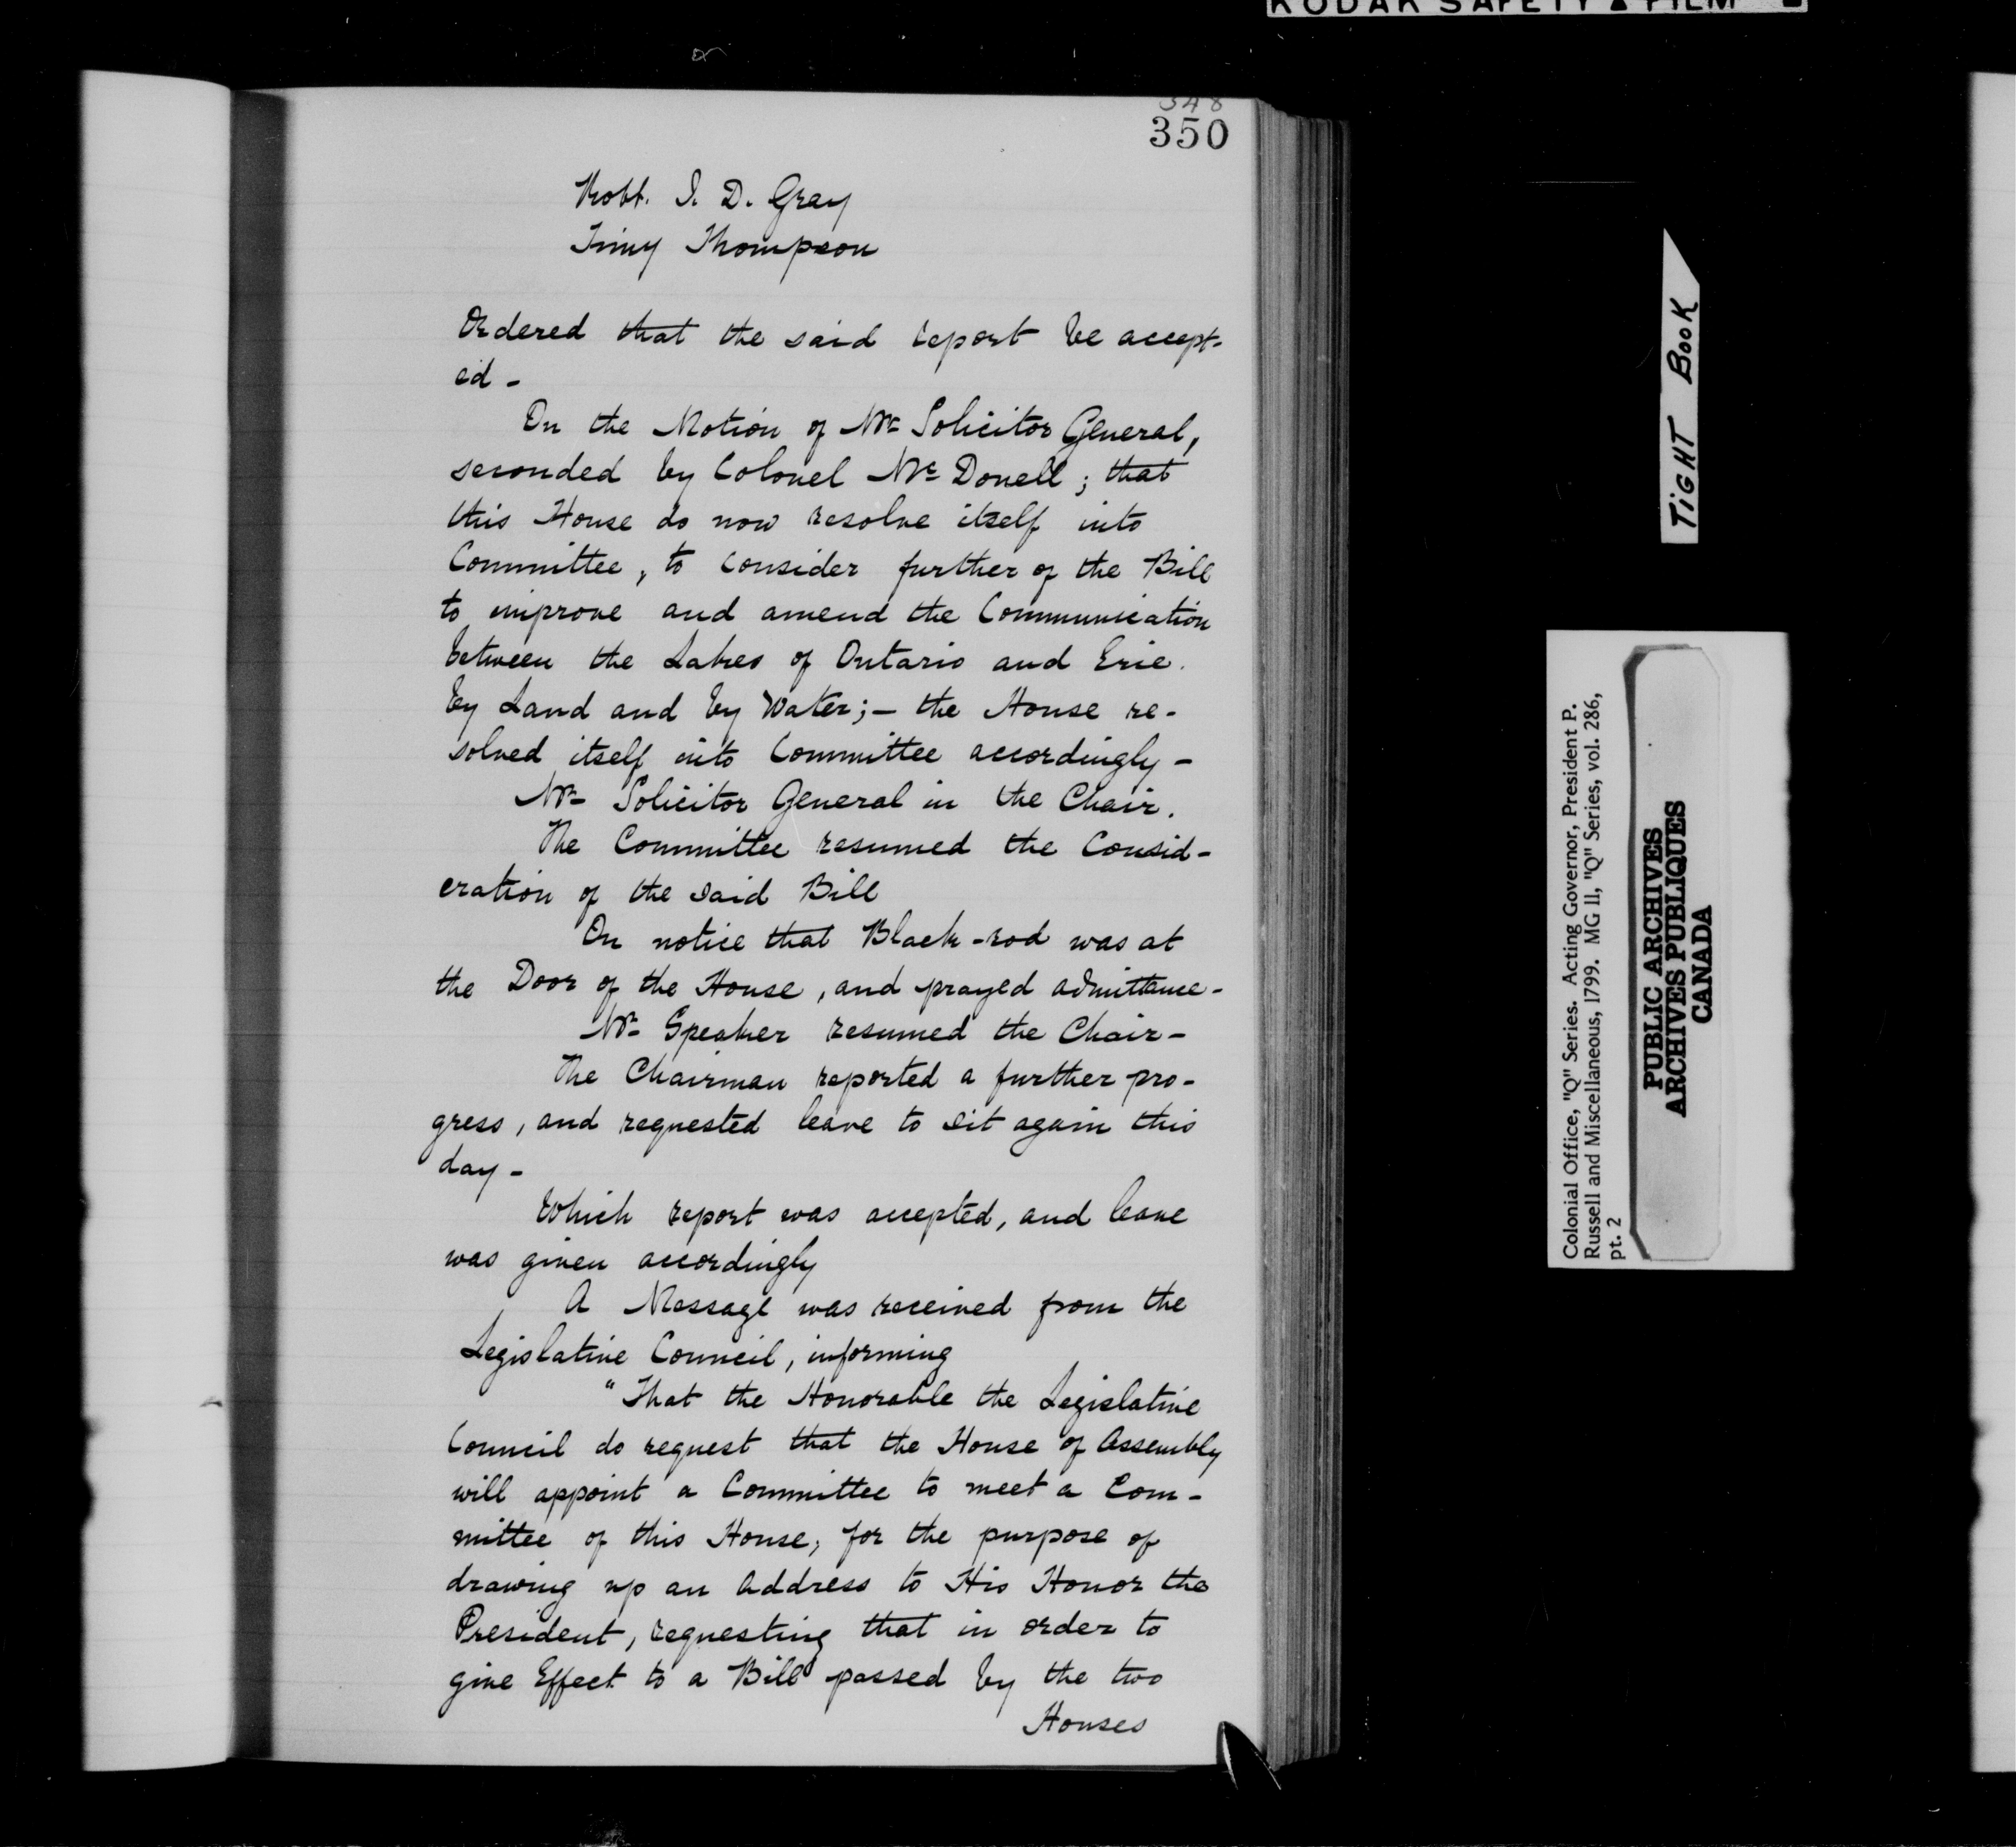 KODAK SAFETY FILM
348
350
Robt. I. D. Gray
Timy Thompson
Ordered that the said report be accept-
ed -
On the Motion of Mr Solicitor General,
seconded by Colonel Mc Donell; that
this House do now resolve itself into
Committee, to consider further of the Bill
to improve and amend the Communication
between the Lakes of Ontario and Erie.
by Land and by Water; - the House re-
solved itself into Committee accordingly -
Mr Solicitor General in the Chair.
The Committee resumed the Consid-
eration of the said Bill
On notice that Black-rod was at
the Door of the House, and prayed admittance -
Mr Speaker resumed the Chair -
The Chairman reported a further pro-
gress, and requested leave to sit again this
day -
Which report was accepted, and leave
was given accordingly
A Message was received from the
Legislative Council, informing
"That the Honorable the Legislative
Council do request that the House of Assembly
will appoint a Committee to meet a Com-
mittee of this House, for the purpose of
drawing up an Address to His Honor the
President, requesting that in order to
give Effect to a Bill passed by the two
Houses
TIGHT BOOK
Colonial Office, "Q" Series. Acting Governor, President P.
Russell and Miscellaneous, 1799. MG 11, "Q" Series, vol. 286,
pt. 2
PUBLIC ARCHIVES
ARCHIVES PUBLIQUES
CANADA